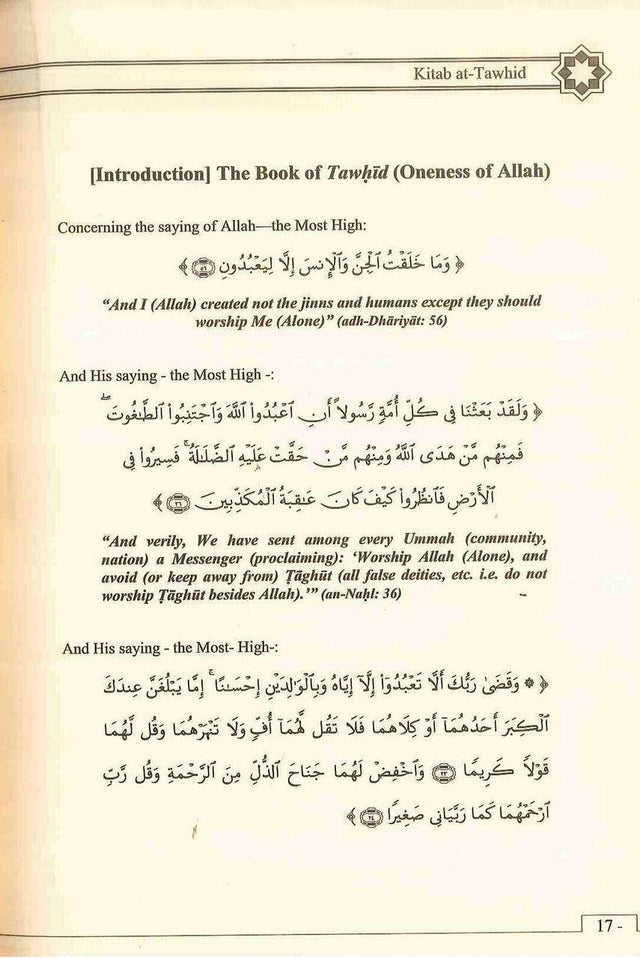 Kitab at-Tawhid
[Introduction] The Book of Tawḥīd (Oneness of Allah)
Concerning the saying of Allah—the Most High:
﴿ وَمَا خَلَقْتُ ٱلْجِنَّ وَٱلْإِنسَ إِلَّا لِيَعْبُدُونِ ۝٥٦ ﴾
“And I (Allah) created not the jinns and humans except they should
worship Me (Alone)” (adh-Dhāriyāt: 56)
And His saying - the Most High -:
﴿ وَلَقَدْ بَعَثْنَا فِى كُلِّ أُمَّةٍ رَّسُولًا أَنِ ٱعْبُدُوا۟ ٱللَّهَ وَٱجْتَنِبُوا۟ ٱلطَّٰغُوتَ ۖ
فَمِنْهُم مَّنْ هَدَى ٱللَّهُ وَمِنْهُم مَّنْ حَقَّتْ عَلَيْهِ ٱلضَّلَٰلَةُ ۚ فَسِيرُوا۟ فِى
ٱلْأَرْضِ فَٱنظُرُوا۟ كَيْفَ كَانَ عَٰقِبَةُ ٱلْمُكَذِّبِينَ ۝٣٦ ﴾
“And verily, We have sent among every Ummah (community,
nation) a Messenger (proclaiming): ‘Worship Allah (Alone), and
avoid (or keep away from) Ṭāghūt (all false deities, etc. i.e. do not
worship Ṭāghūt besides Allah).’” (an-Naḥl: 36)
And His saying - the Most- High-:
﴿ ۞ وَقَضَىٰ رَبُّكَ أَلَّا تَعْبُدُوٓا۟ إِلَّآ إِيَّاهُ وَبِٱلْوَٰلِدَيْنِ إِحْسَٰنًا ۚ إِمَّا يَبْلُغَنَّ عِندَكَ
ٱلْكِبَرَ أَحَدُهُمَآ أَوْ كِلَاهُمَا فَلَا تَقُل لَّهُمَآ أُفٍّ وَلَا تَنْهَرْهُمَا وَقُل لَّهُمَا
قَوْلًا كَرِيمًا ۝٢٣ وَٱخْفِضْ لَهُمَا جَنَاحَ ٱلذُّلِّ مِنَ ٱلرَّحْمَةِ وَقُل رَّبِّ
ٱرْحَمْهُمَا كَمَا رَبَّيَانِى صَغِيرًا ۝٢٤ ﴾
17 -